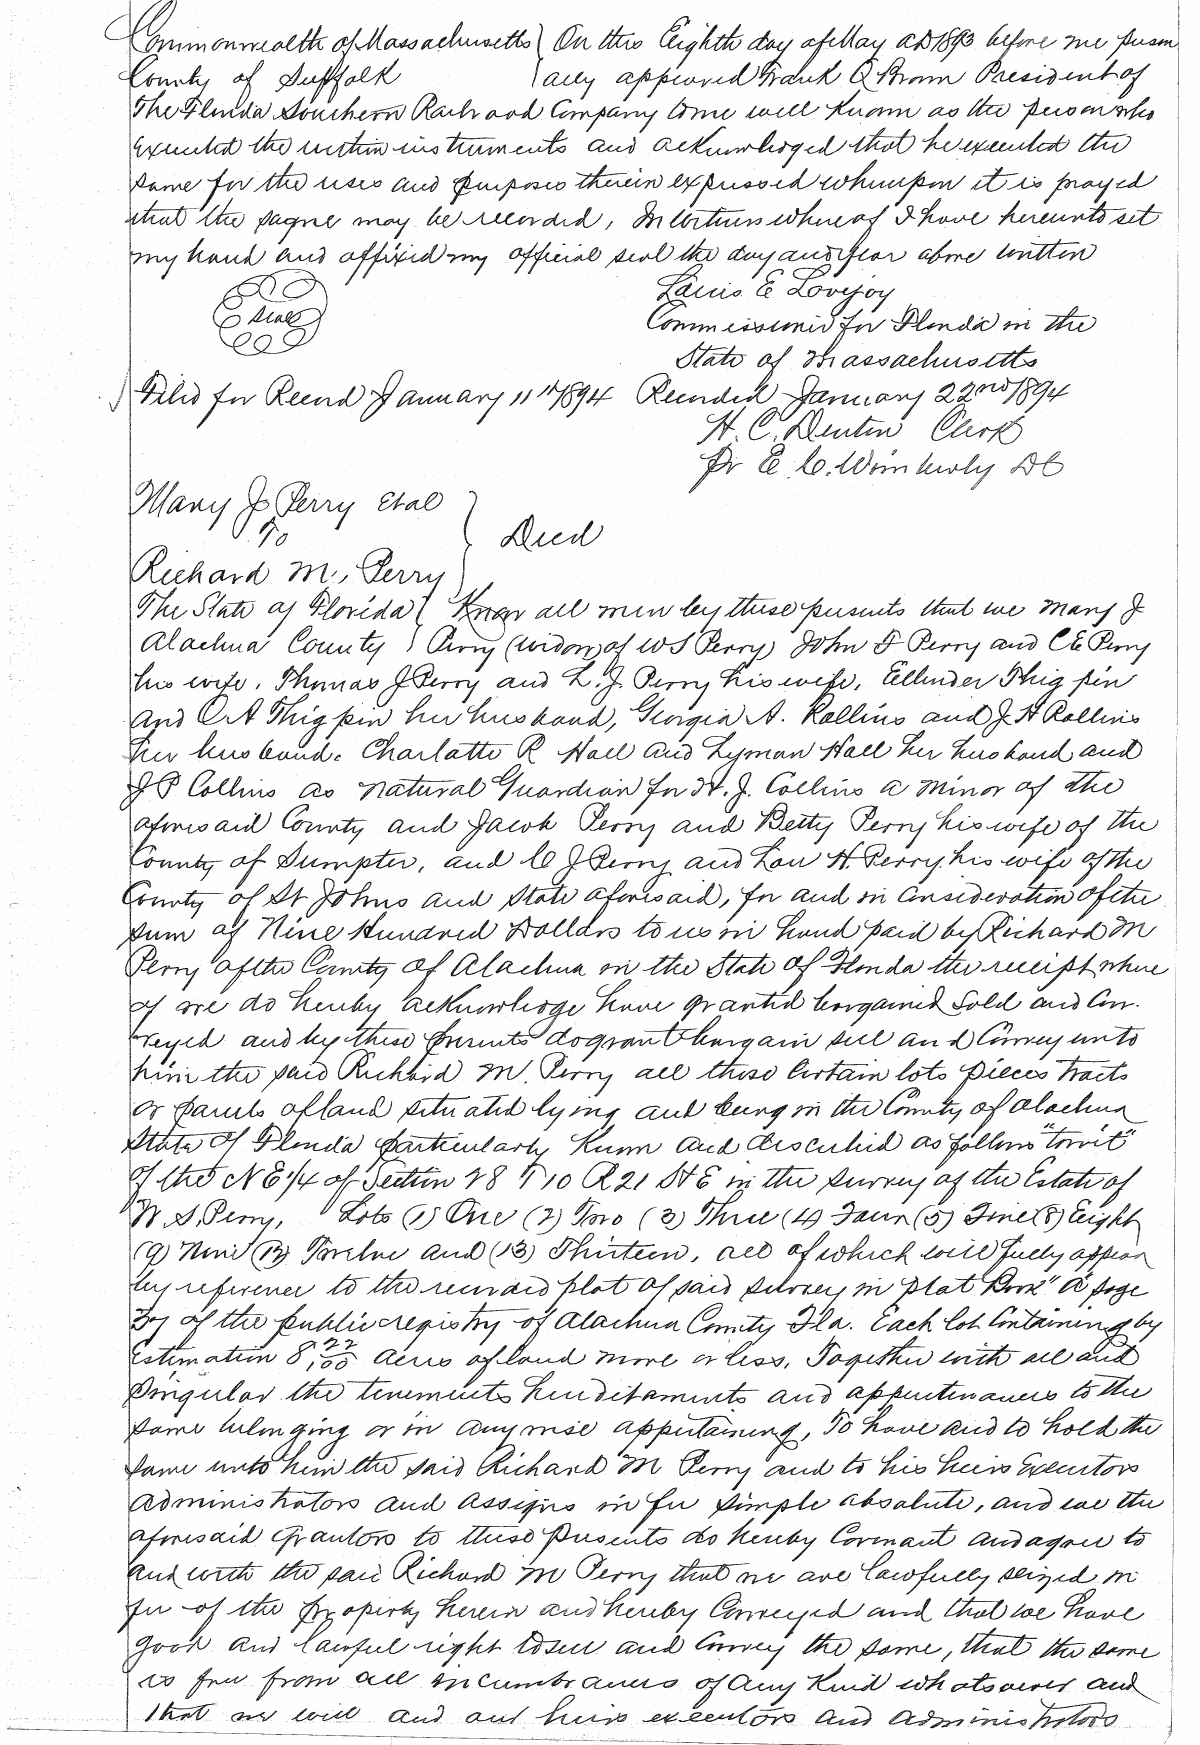 Commonwealth of Massachusetts } On this Eighth day of May AD 1893 before me person
County of Suffolk } ally appeared Frank Q Brown President of
The Florida Southern Railroad Company to me well known as the person who
executed the within instruments and acknowledged that he executed the
same for the uses and purposes therein expressed whereupon it is prayed
that the same may be recorded, In witness whereof I have hereunto set
my hand and affixed my official seal the day and year above written
Seal
Louis E Lovejoy
Commissioner for Florida in the
State of Massachusetts
Filed for Record January 11th 1894 Recorded January 22nd 1894
H. C. Denton Clerk
Pr E. C. Wimberly DC
Mary J Perry Etal
To } Deed
Richard M. Perry
The State of Florida { Know all men by these presents that we Mary J
Alachua County } Perry (widow) of W S Perry) John F Perry and C E Perry
his wife. Thomas J Perry and L. J. Perry his wife, Ellender Thigpin
and O A Thigpin her husband, Georgia A. Rollins and J H Rollins
her husband. Charlotte R Hall and Lyman Hall her husband and
J P Collins as natural Guardian for H. J. Collins a minor of the
aforesaid County and Jacob Perry and Betty Perry his wife of the
County of Sumpter, and C J Perry and Lou H. Perry his wife of the
County of St Johns and State aforesaid, for and in consideration of the
sum of Nine Hundred Dollars to us in hand paid by Richard M
Perry of the County of Alachua in the State of Florida the receipt where
of we do hereby acknowledge have granted bargained Sold and Con-
veyed and by these presents do grant bargain sell and Convey unto
him the said Richard M. Perry all those Certain lots pieces tracts
or parcels of land situated lying and being in the County of Alachua
State of Florida particularly known and described as follows "towit"
Of the N E 1/4 of Section 28 T 10 R 21 S & E in the survey of the Estate of
W. S. Perry, Lots (1) One (2) Two (3) Three (4) Four (5) Five (8) Eight
(9) Nine (12) Twelve and (13) Thirteen, all of which will fully appear
by reference to the record plot of said survey in plat Book "A" page
of the public registry of Alachua County Fla. Each lot Containing by
Estimation 8 22/100 acres of land more or less, Together with all and
Singular the tenements hereditaments and appurtenances to the
same belonging or in anywise appertaining, To have and to hold the
same unto him the said Richard M Perry and to his heirs Executors
Administrators and Assigns in fee simple absolute, and we the
aforesaid Grantors to these presents do hereby Covenant and agree to
and with the said Richard M Perry that we are lawfully seized in
fee of the property herein and hereby Conveyed and that we have
good and lawful right to sell and Convey the same, that the same
is free from all incumbrances of any kind whatsoever and
that we will and our heirs executors and administrators